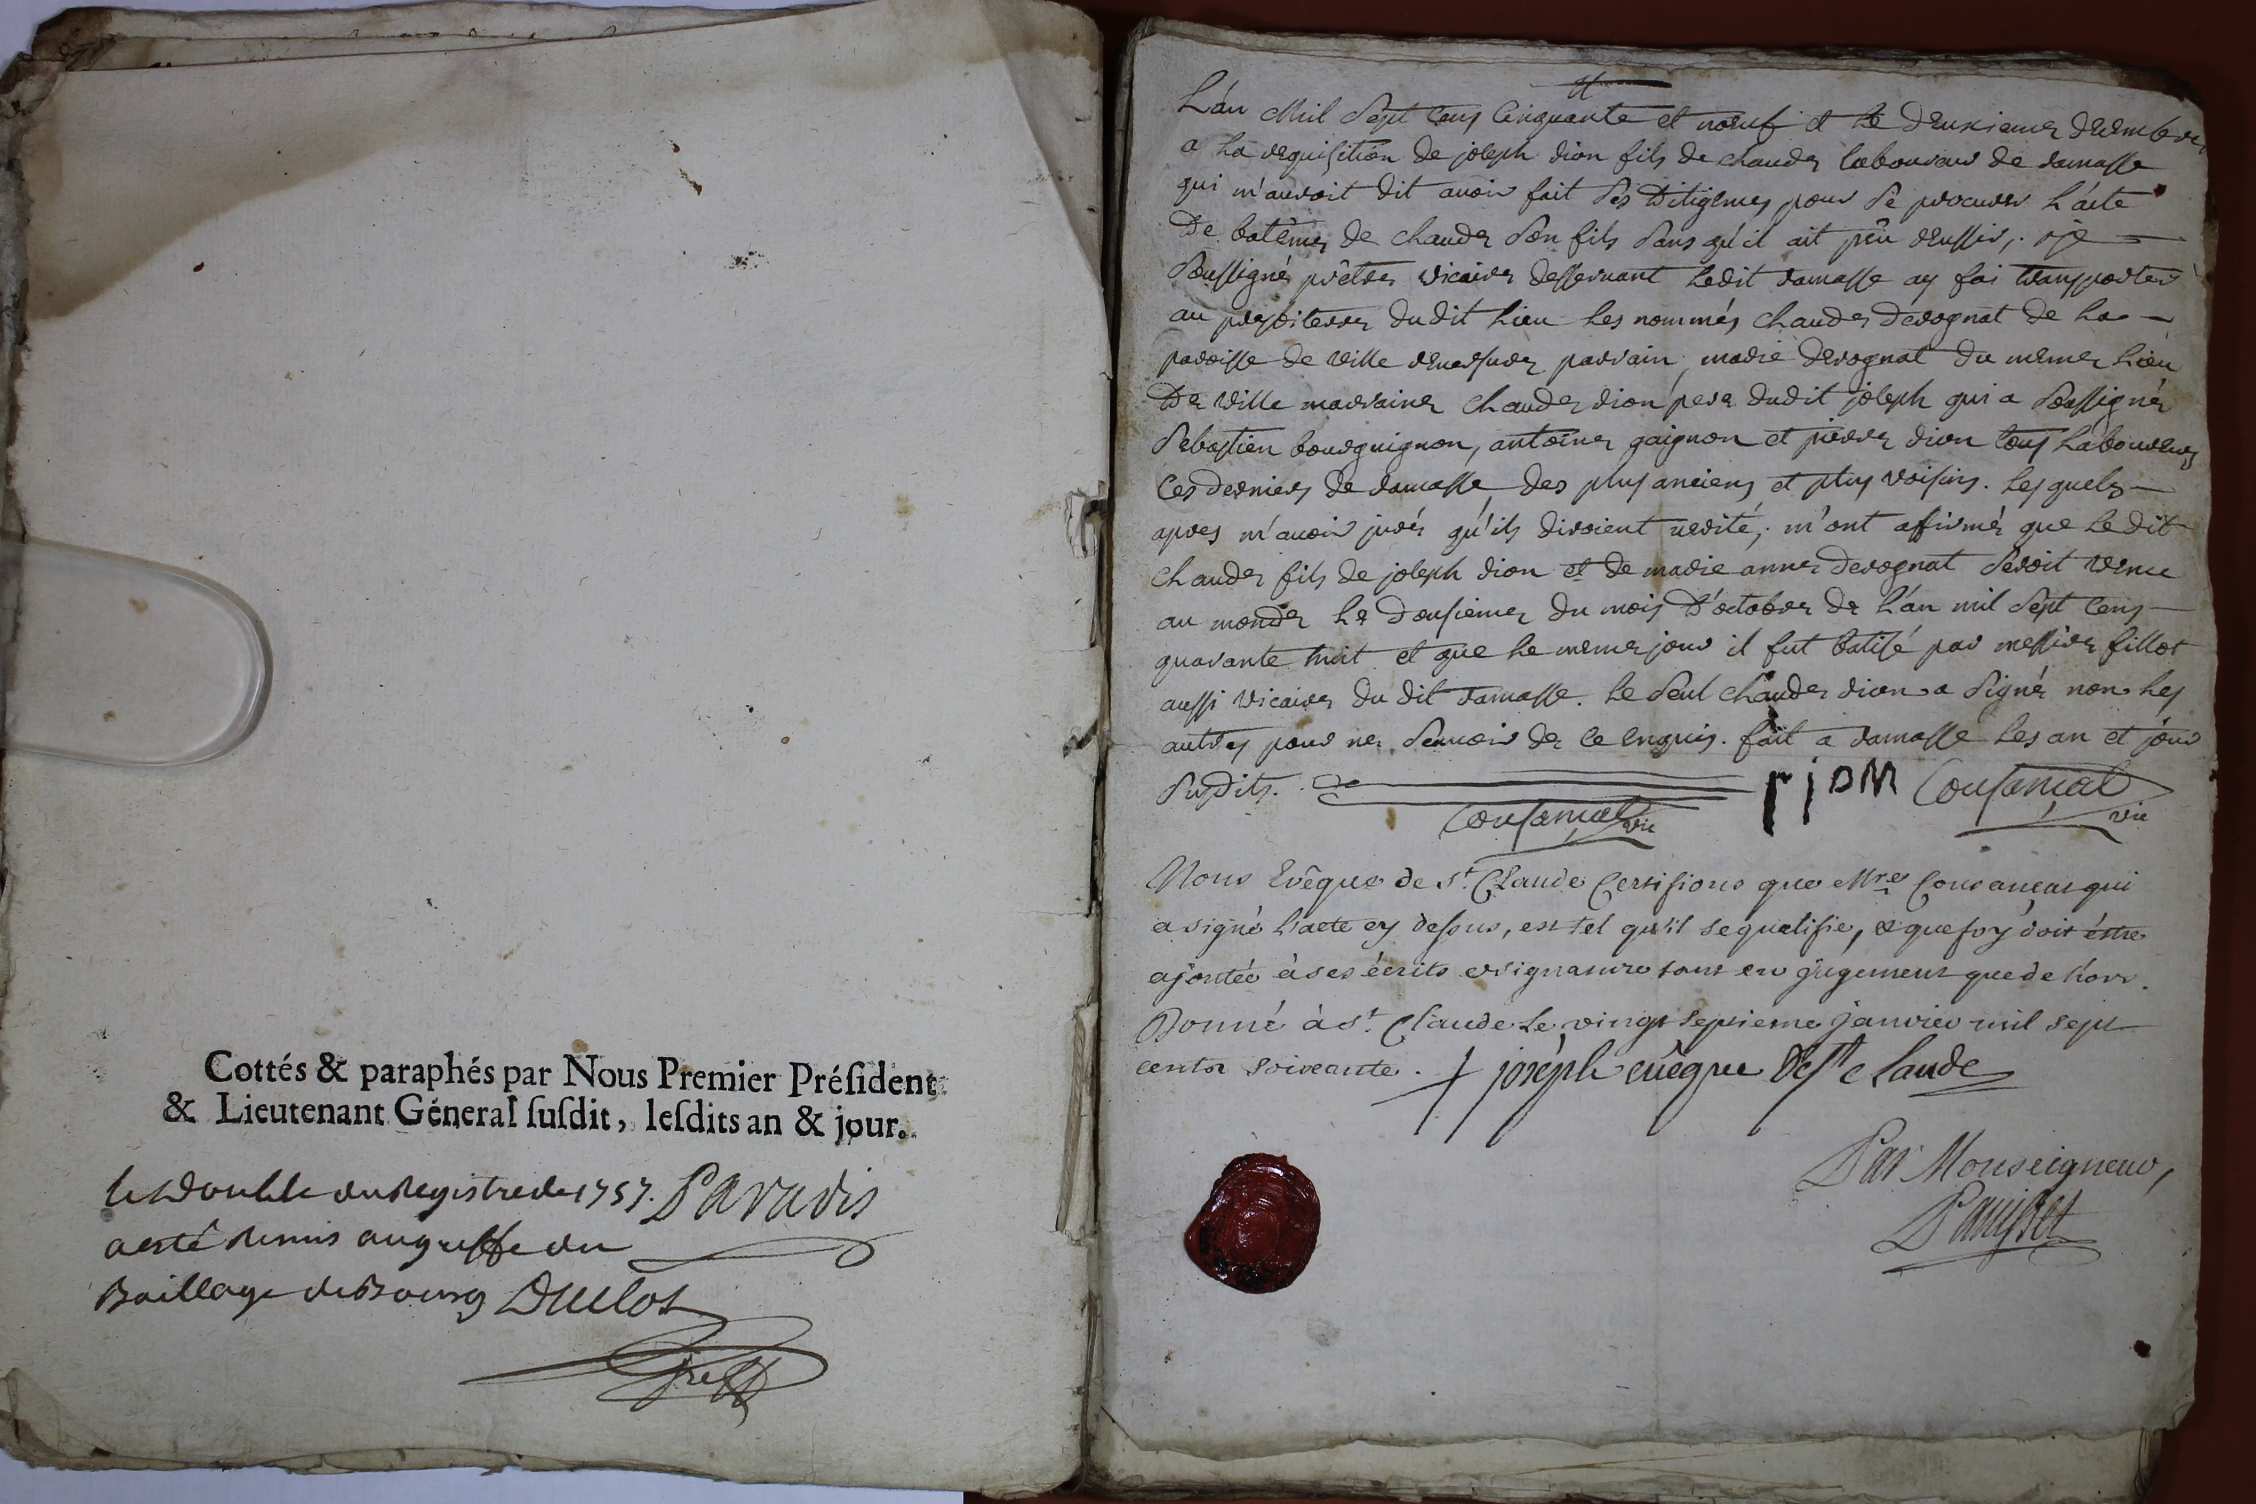 Cottés & paraphés par Nous Premier Préſident
& Lieutenant Géneral ſuſdit, leſdits an & jour.
le double du Registre de 1757. Paradis
a esté remis au greffe du
Baillage de Bourg Duclos
greff
L'an Mil Sept Cens Cinquante et noeuf et le deuxieme decembre
a la requisition de joseph dion fils de claude laboureur de ramasse
qui m'auroit dit avoir fait ses diligences pour se procurer l'acte
De batême de claude son fils sans qu'il ait pêu reussir, je
Soussigné prêtre vicaire desservant ledit ramasse ay fai transporter
au presbitere dudit lieu les nommés claude derognat de la
paroisse de ville reversure parrain, marie derognat du meme lieu
De ville marraine claude dion pere dudit joseph qui a soussigné
Sebastien bourguignon, antoine gaignon et pierre dion tous laboureurs
Ces derniers de ramasse des plus anciens et plus voisins. lesquels
apres m'avoir jurés qu'ils diroient verité, m'ont affirmés que ledit
claude fils de joseph dion et de marie anne derognat seroit venu
au monde le dousieme du mois d'octobre de l'an mil sept cens
quarante huit et que le meme jour il fut batisé par messire fillot
aussi vicaire du dit ramasse. le seul claude dion a signé non les
autres pour ne sçavoir de ce enquis. fait a ramasse les an et jour
susdits.
Cousançat vic
DM Cousançat vic
Nous Evêque de St. Claude Certifions que Mre Cousançat qui
a signé l'acte cy dessus, est tel qu'il se qualifie, & que foy doit être
ajoutée à ses écrits et signature tant en jugement que dehors.
Donné à St. Claude le vingt septieme janvier mil sept
cents soixante. † joseph evêque de St claude
Par Monseigneur,